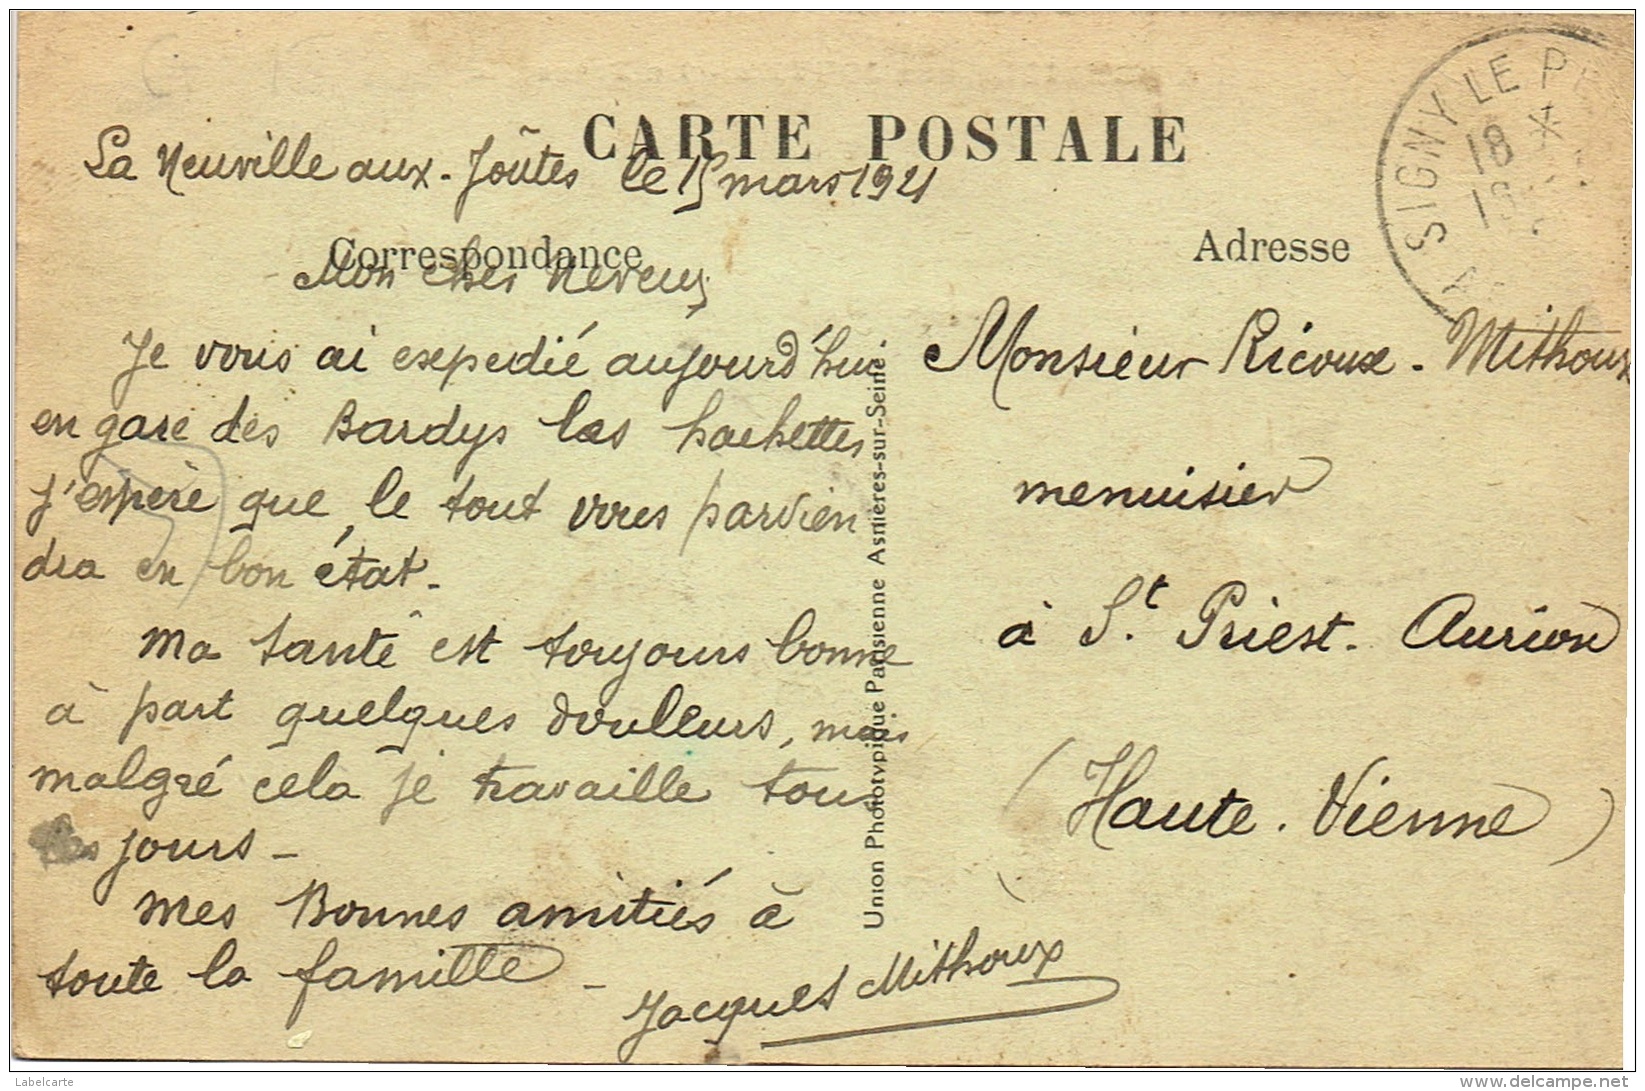 CARTE POSTALE
La Neuville aux-Joûtes le 15 mars 1921
Correspondance
Mon cher Neveux
Je vous ai expedié aujourd'hui
en gare des Bardys les hachettes
j'espère que le tout vous parvien
dra en bon état-
Ma santé est toujours bonne
à part quelques douleurs, mais
malgré cela je travaille tous
les jours-
Mes Bonnes amitiés à
toute la famille -
Jacques Mithoux
Union Phototypique Parisienne Asnieres-sur-Seine
SIGNY LE P
18 *
Adresse
Monsieur Ricoux-Mithoux
menuisier
à St. Priest-Taurion
(Haute-Vienne)
Labelcarte
www.delcampe.net